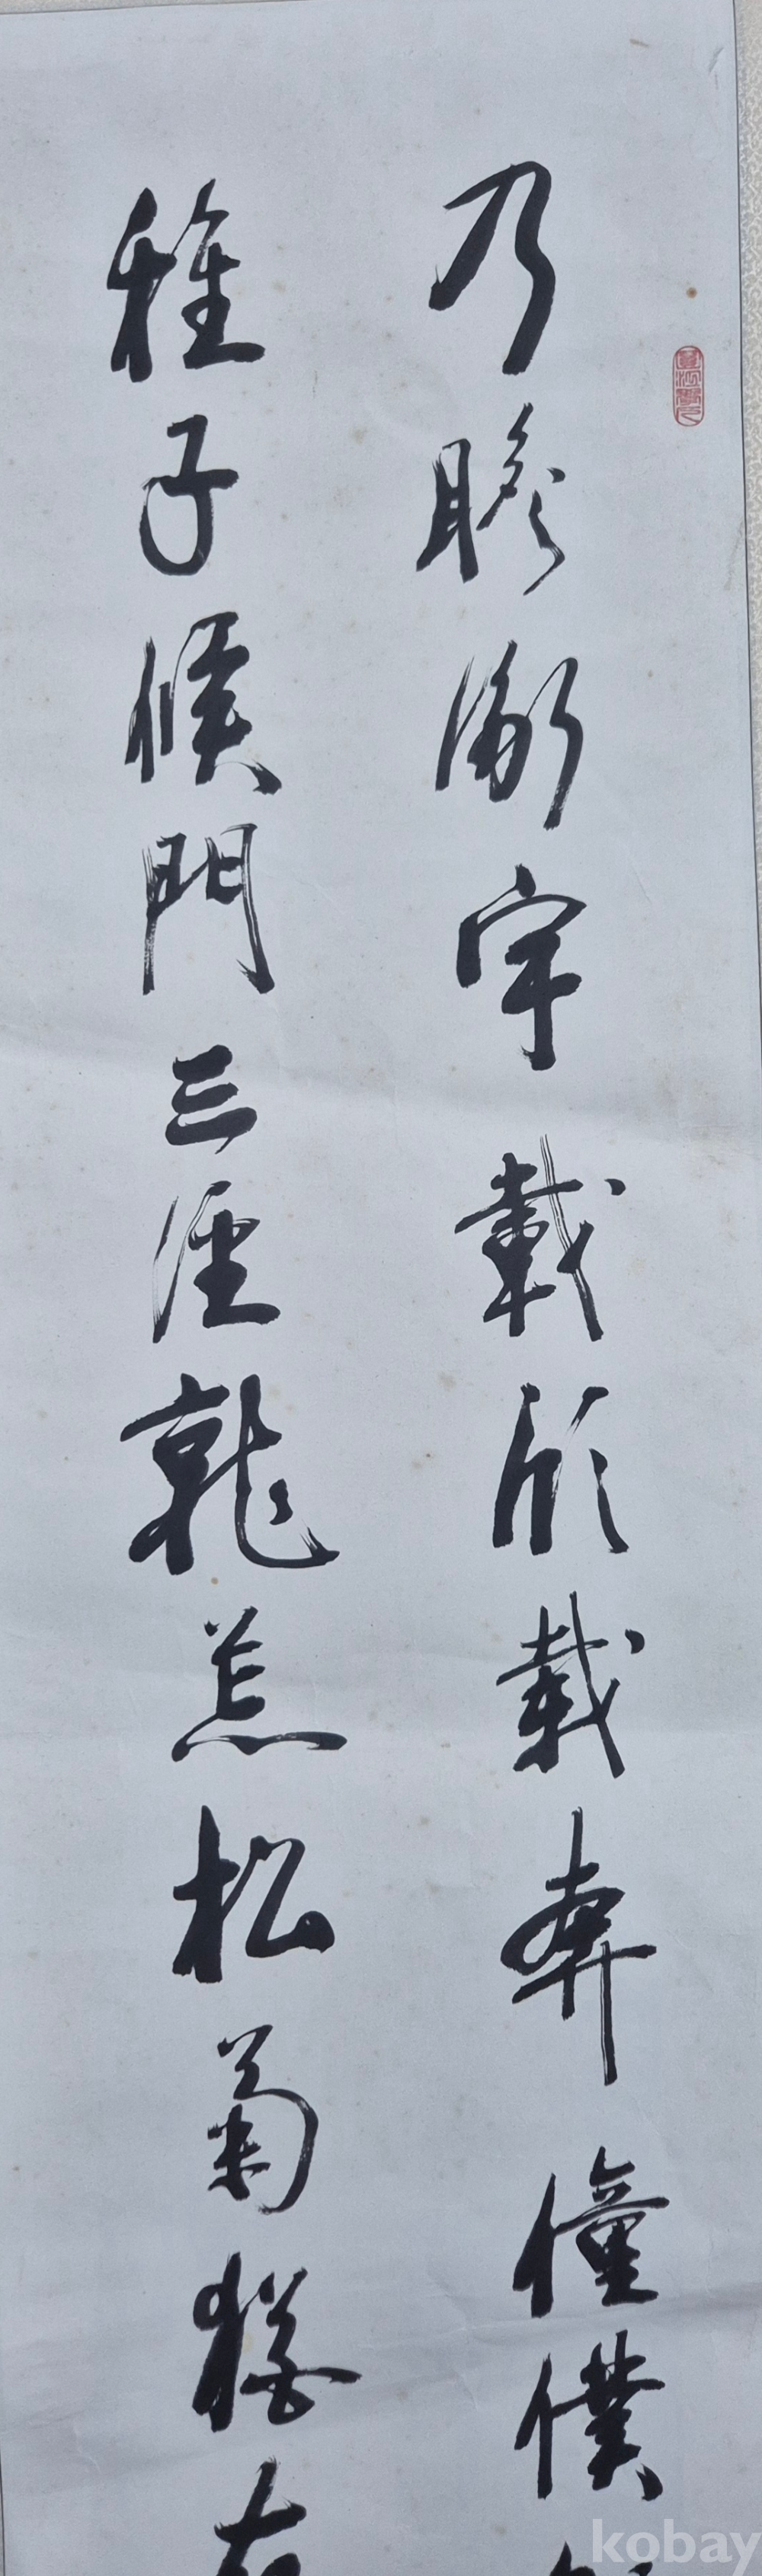 乃瞻衡宇載欣載奔僮僕
稚子候門三逕就荒松菊猶存
kobay